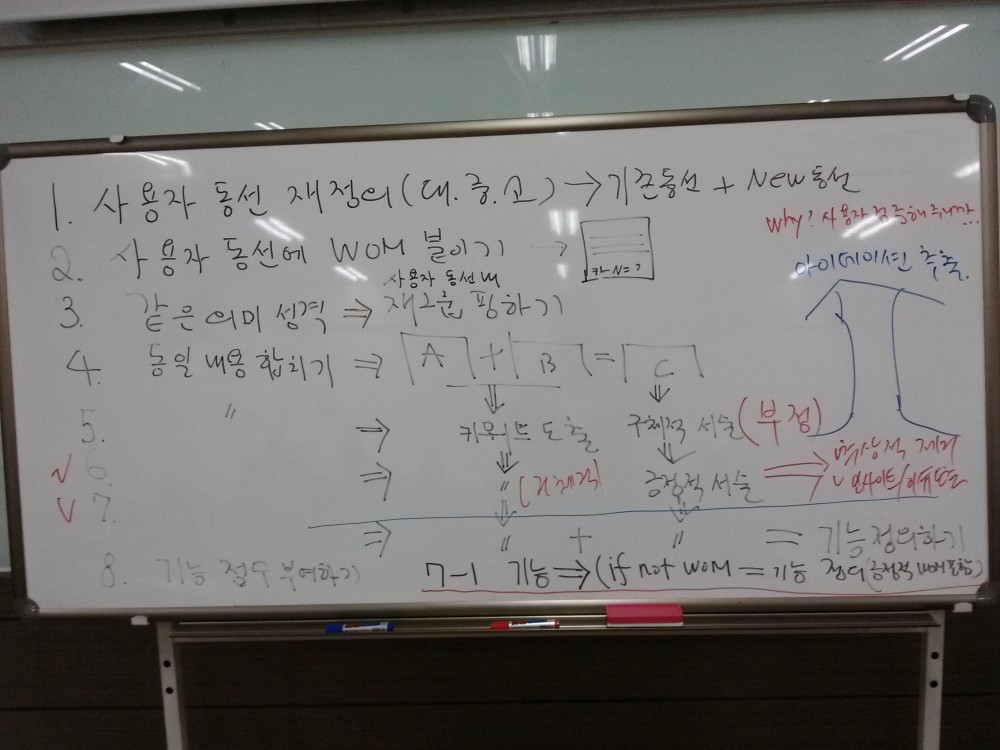 1. 사용자 동선 재정의(대.중.고) → 기존동선 + New동선
why? 사용자 검증해주니까...
2. 사용자 동선에 WOM 붙이기 →
카-N=?
아이데이션 추출.
사용자 동선 내
3. 같은 의미 성격 ⇒ 재그룹핑하기
4. 동일 내용 합치기 ⇒ A + B = C
5. " ⇒ 키워드 도출 구체적 서술(부정)
√ 6. ⇒ " 긍정적 서술 ⇒ 제거
√ 7. 인사이트/이슈도출
⇒ " + " = 기능정의하기
8. 기능 점수부여하기
7-1 기능 ⇒ (if not WOM = 기능 정의(긍정적 WOM포함)